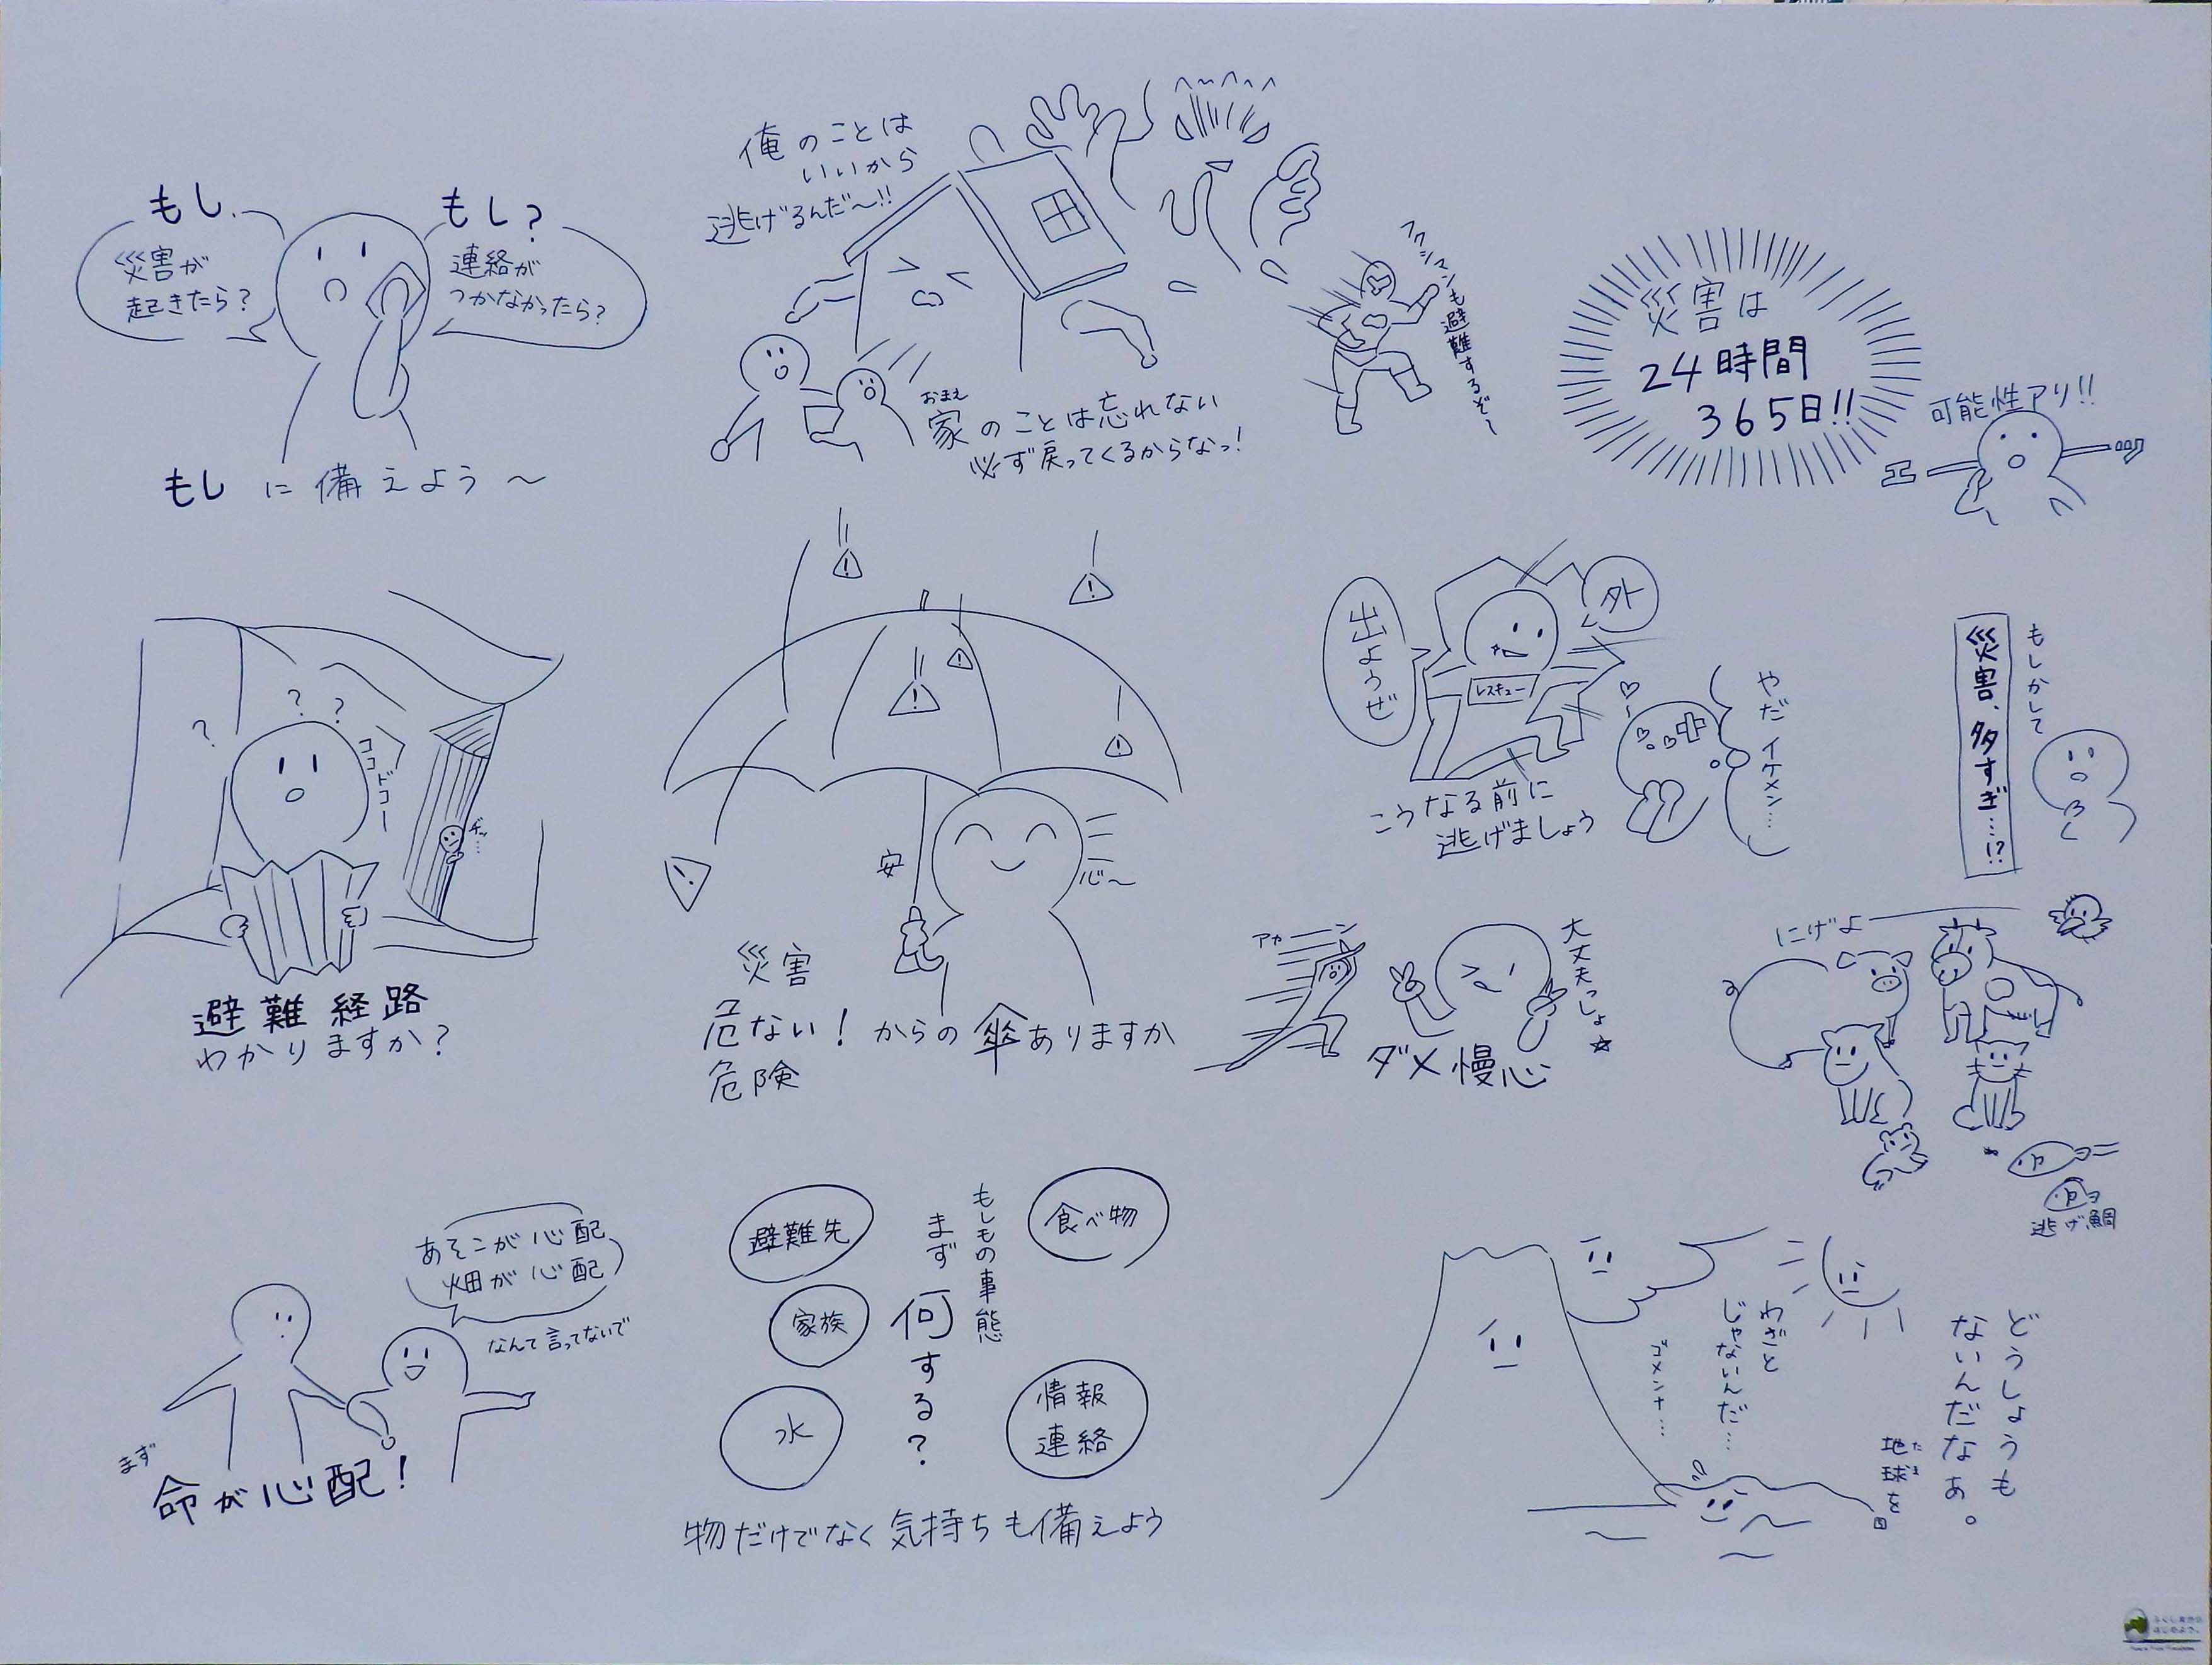 もし
もし?
災害が
起きたら?
連絡が
つかなかったら?
もしに備えよう〜
俺のことは
いいから
逃げるんだ〜!!
おまえ
家のことは忘れない
必ず戻ってくるからなっ!
フクシマンも避難するぞ〜
災害は
24時間
365日!!
可能性アリ!!
? ? ?
ココドコー
チッ…
避難経路
わかりますか?
!
!
!
!
!
!
安
心〜
災害
危ない!からの傘ありますか
危険
外
出ようぜ
レスキュー
やだイケメン…
こうなる前に
逃げましょう
もしかして
災害、多すぎ…!?
アカーン
大丈夫っしょ☆
ダメ慢心
にげよ
逃げ鯛
あそこが心配
畑が心配
なんて言ってないで
まず
命が心配!
もしもの事態
まず何する?
避難先
食べ物
家族
水
情報
連絡
物だけでなく気持ちも備えよう
わざと
じゃないんだ…
ゴメンナ…
どうしょうも
ないんだなぁ。
たま
地球を